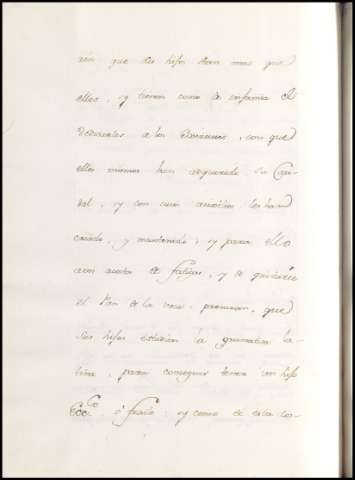 rán que sus hijos sean mas que
ellos, y tienen como à infamia el
dedicarles a los exercicios, con que
ellos mismos han adquirido su Cau-
dal, y con cuio auxilio los han
criado, y mantenido; y para ello
aun acosta de fatigas, y de quitarse
el Pan de la voca procuran, que
sus hijos estudien la gramatica la-
tina, para conseguir tener un hijo
Ecc.co ò fraile: y como de esta cos-